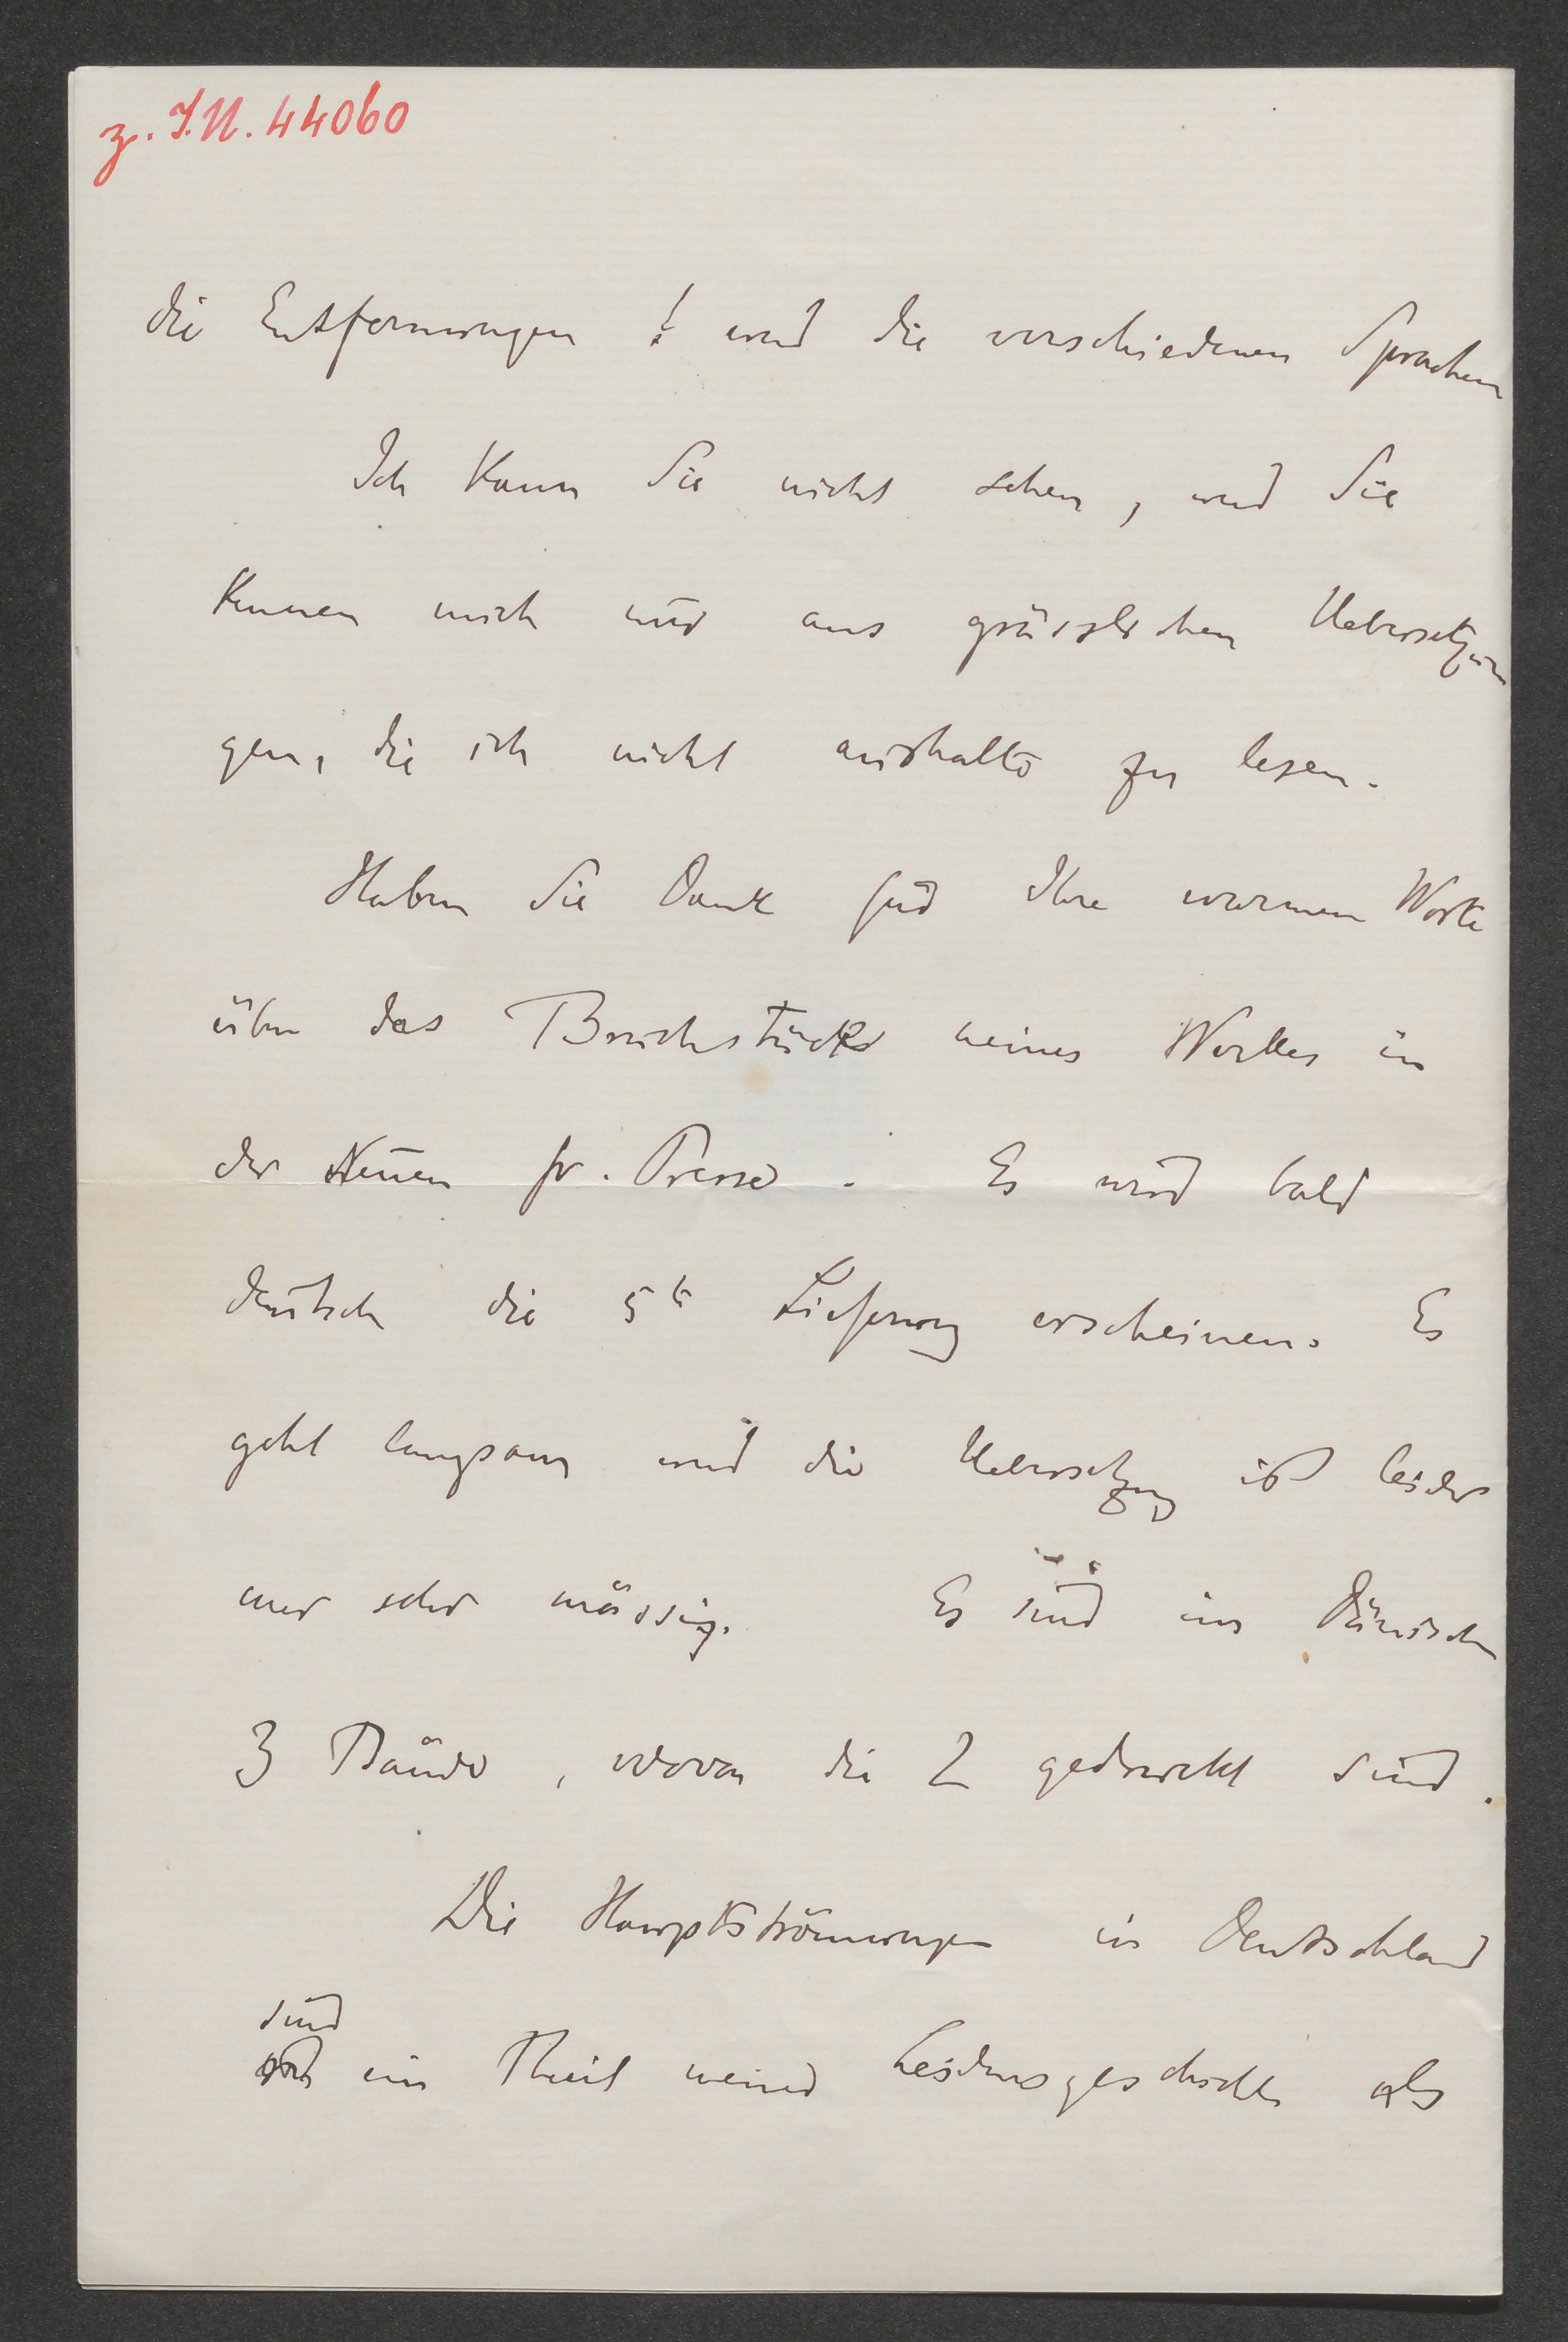 z. I.N. 44060
die Entfernungen! und die verschiedenen Sprachen
Ich kann Sie nicht sehen, und Sie
kennen mich nur aus grässlichen Uebersetzun
gen, die ich nicht aushalte zu lesen.
Haben Sie Dank für Ihre warmen Worte
über das Bruchstück meines Werkes in
der Neuen fr. Presse. Es wird bald
deutsch die 5te Lieferung erscheinen. Es
geht langsam und die Uebersetzung ist leider
nur sehr mässig. Es sind im Dänischen
3 Bände, wovon die 2 gedruckt sind.
Die Hauptströmungen in Deutschland
sind
ein Theil meiner Leidensgeschichte als